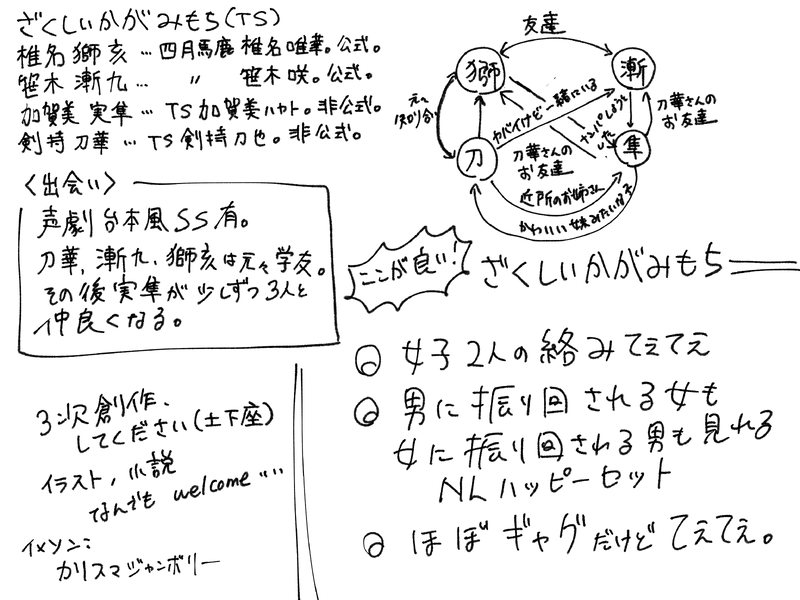 ざくしいかがみもち(TS)
椎名 獅亥 … 四月馬鹿 椎名唯華。公式。
笹木 漸九 … 〃 笹木 咲。公式。
加賀美 実隼 … TS加賀美ハヤト。非公式。
剣持 刀華 … TS剣持刀也。非公式。
友達
獅
漸
元々知り合い
ヤバイけど一緒にいる
ナンパしようとした
刀華さんのお友達
刀
刀華さんのお友達
隼
近所のお姉さん
かわいい妹みたいな子
〈出会い〉
声劇台本風SS有。
刀華、漸九、獅亥は元々学友。
その後実隼が少しずつ3人と
仲良くなる。
ここが良い!
ざくしいかがみもち
女子2人の絡みてえてえ
男に振り回される女も
女に振り回される男も見れる
NLハッピーセット
ほぼギャグだけどてえてえ。
3次創作、
してください(土下座)
イラスト、小説
なんでも welcome
イメソン:
カリスマジャンボリー